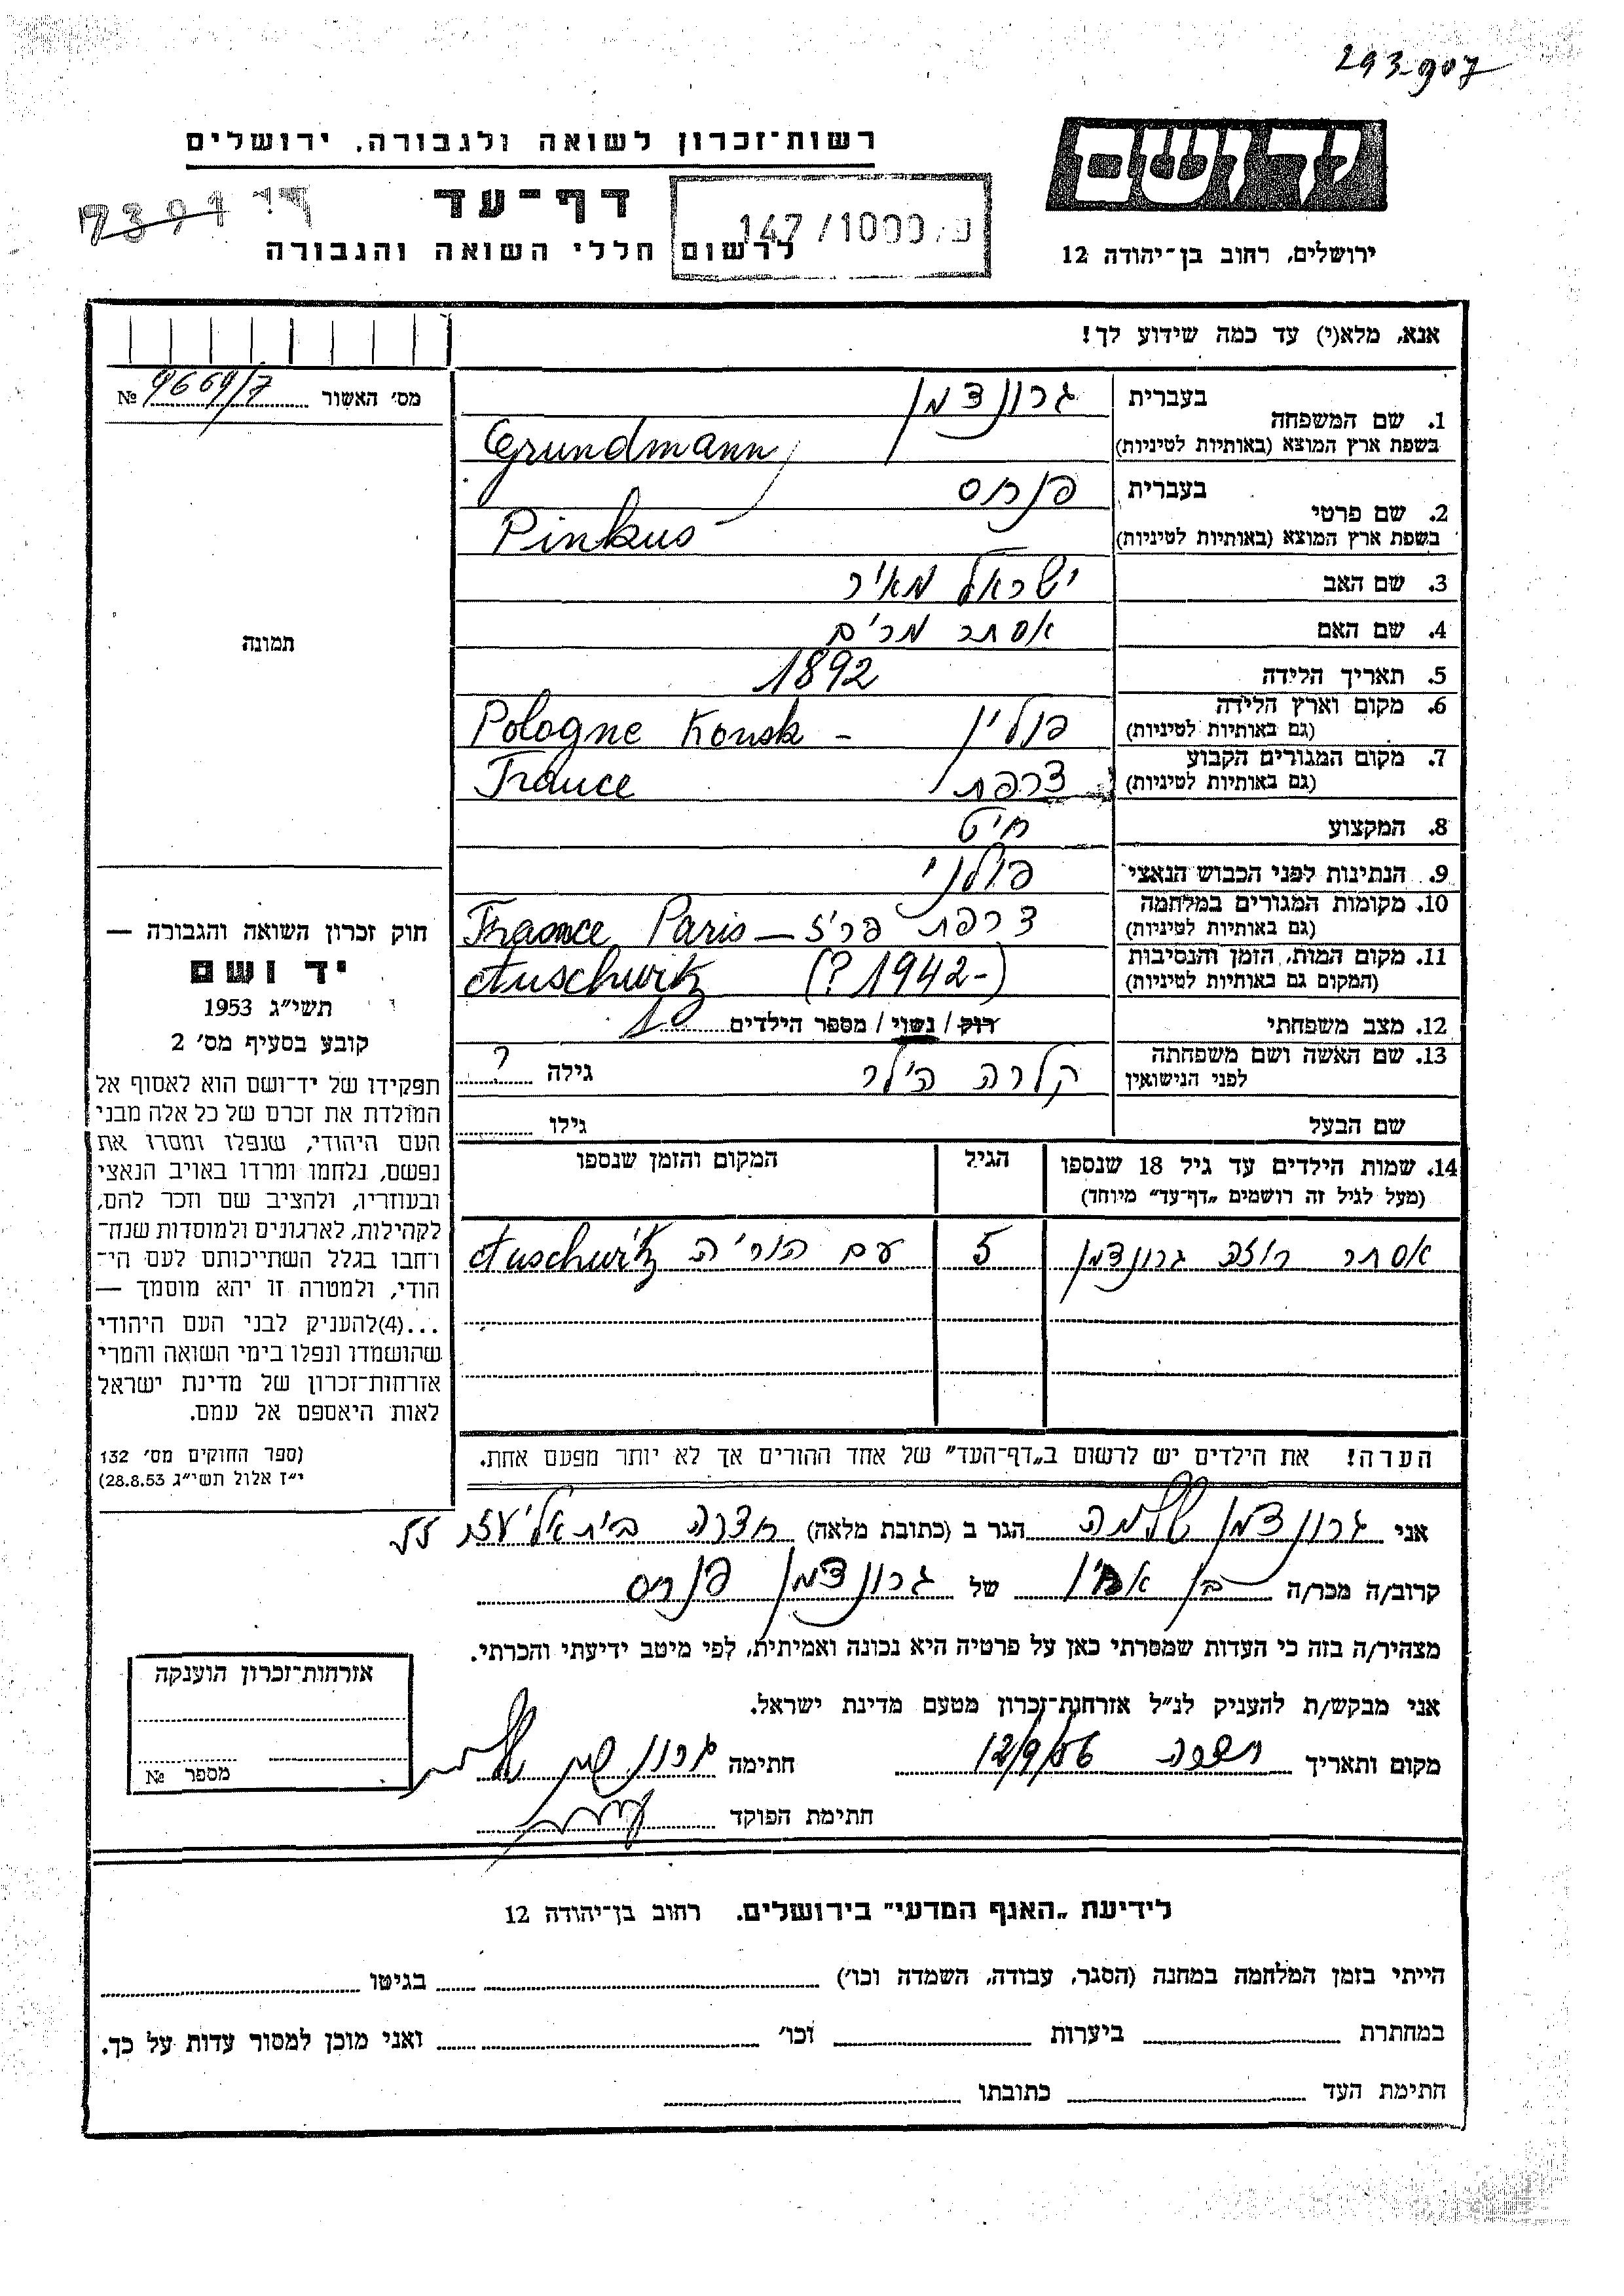 293907
רשות-זכרון לשואה ולגבורה, ירושלים
יד ושם
דף-עד
147/1000/ט
לרשום חללי השואה והגבורה
ירושלים, רחוב בן-יהודה 12
אנא, מלא(י) עד כמה שידוע לך!
מס׳ האשור № 9669/7
1. שם המשפחה בעברית גרונדמן
בשפת ארץ המוצא (באותיות לטיניות) Grundmann
2. שם פרטי בעברית פנחס
בשפת ארץ המוצא (באותיות לטיניות) Pinkus
3. שם האב ישראל מאיר
4. שם האם אסתר מרים
5. תאריך הלידה 1892
6. מקום וארץ הלידה (גם באותיות לטיניות) פולין - Pologne Konsk
7. מקום המגורים הקבוע (גם באותיות לטיניות) צרפת France
8. המקצוע חיט
9. הנתינות לפני הכבוש הנאצי פולני
10. מקומות המגורים במלחמה (גם באותיות לטיניות) צרפת פריז — France Paris
11. מקום המות, הזמן והנסיבות (המקום גם באותיות לטיניות) (-1942 ?) Auschwitz
12. מצב משפחתי רוק / נשוי / מספר הילדים 10
13. שם האשה ושם משפחתה לפני הנישואין קלרה הילר גילה ?
שם הבעל גילו
14. שמות הילדים עד גיל 18 שנספו (מעל לגיל זה רושמים „דף-עד” מיוחד) הגיל המקום והזמן שנספו
אסתר רוזה גרונדמן 5 עם הוריה Auschwitz
הערה! את הילדים יש לרשום ב„דף-העד” של אחד ההורים אך לא יותר מפעם אחת.
תמונה
חוק זכרון השואה והגבורה —
יד ושם
תשי״ג 1953
קובע בסעיף מס׳ 2
תפקידו של יד-ושם הוא לאסוף אל
המולדת את זכרם של כל אלה מבני
העם היהודי, שנפלו ומסרו את
נפשם, נלחמו ומרדו באויב הנאצי
ובעוזריו, ולהציב שם וזכר להם,
לקהילות, לארגונים ולמוסדות שנח-
רחבו בגלל השתייכותם לעם הי-
הודי, ולמטרה זו יהא מוסמך —
...(4)להעניק לבני העם היהודי
שהושמדו ונפלו בימי השואה והמרי
אזרחות-זכרון של מדינת ישראל
לאות היאספם אל עמם.
(ספר החוקים מס׳ 132
י״ז אלול תשי״ג 28.8.53)
אני גרונדמן שלמה הגר ב (כתובת מלאה) חדרה בית אליעזר
קרוב/ה מכר/ה בן אחיו של גרונדמן פנחס
מצהיר/ה בזה כי העדות שמסרתי כאן על פרטיה היא נכונה ואמיתית, לפי מיטב ידיעתי והכרתי.
אני מבקש/ת להעניק לנ״ל אזרחות-זכרון מטעם מדינת ישראל.
מקום ותאריך חדרה 12/9/56 חתימה
חתימת הפוקד
אזרחות-זכרון הוענקה
מספר №
לידיעת „האגף המדעי” בירושלים. רחוב בן-יהודה 12
הייתי בזמן המלחמה במחנה (הסגר, עבודה, השמדה וכו׳) בגיטו
במחתרת ביערות וכו׳ ואני מוכן למסור עדות על כך.
חתימת העד כתובתו